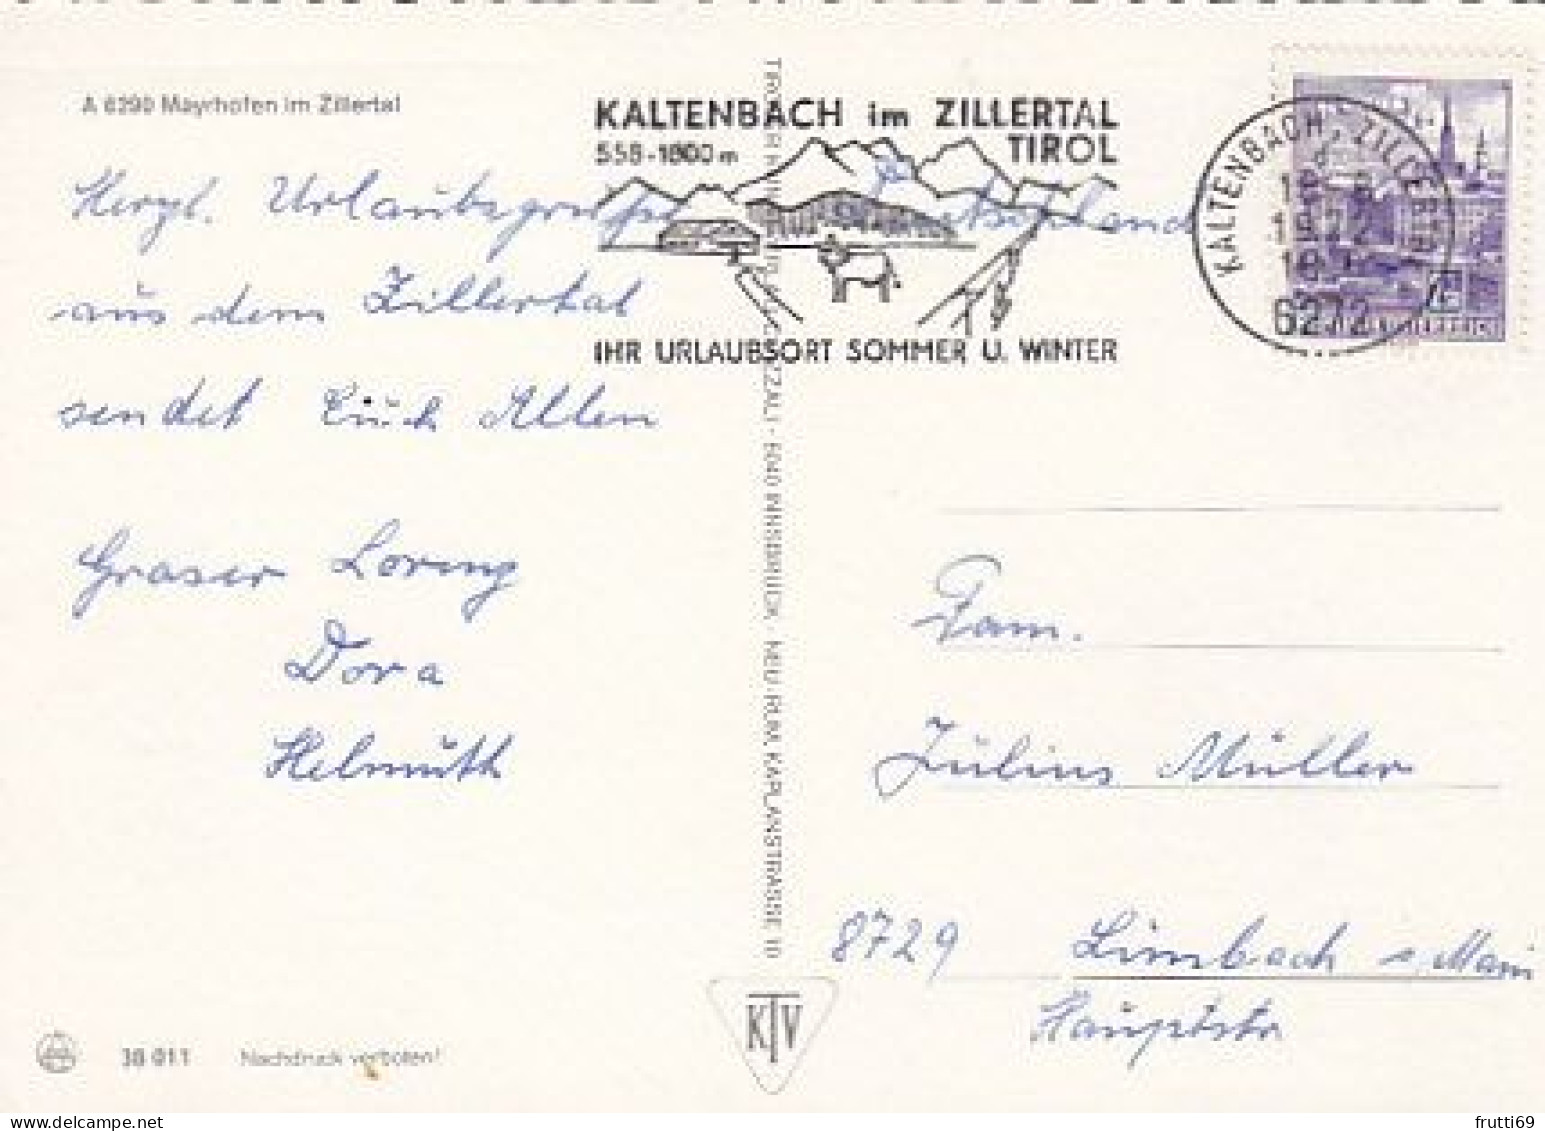 A 6290 Mayrhofen im Zillertal
KALTENBACH im ZILLERTAL
558-1800 m TIROL
IHR URLAUBSORT SOMMER U. WINTER
KALTENBACH, ZILLERTAL
6272
Herzl. Urlaubsgrüße
aus dem Zillertal
sendet Euch Allen
Graser Lorenz
Dora
Helmuth
6040 INNSBRUCK, NEU-RUM, KAPLANSTRASSE 10
Fam.
Julius Müller
8729 Limbach a. Main
Hauptstr
KTV
38 011 Nachdruck verboten!
frutti69